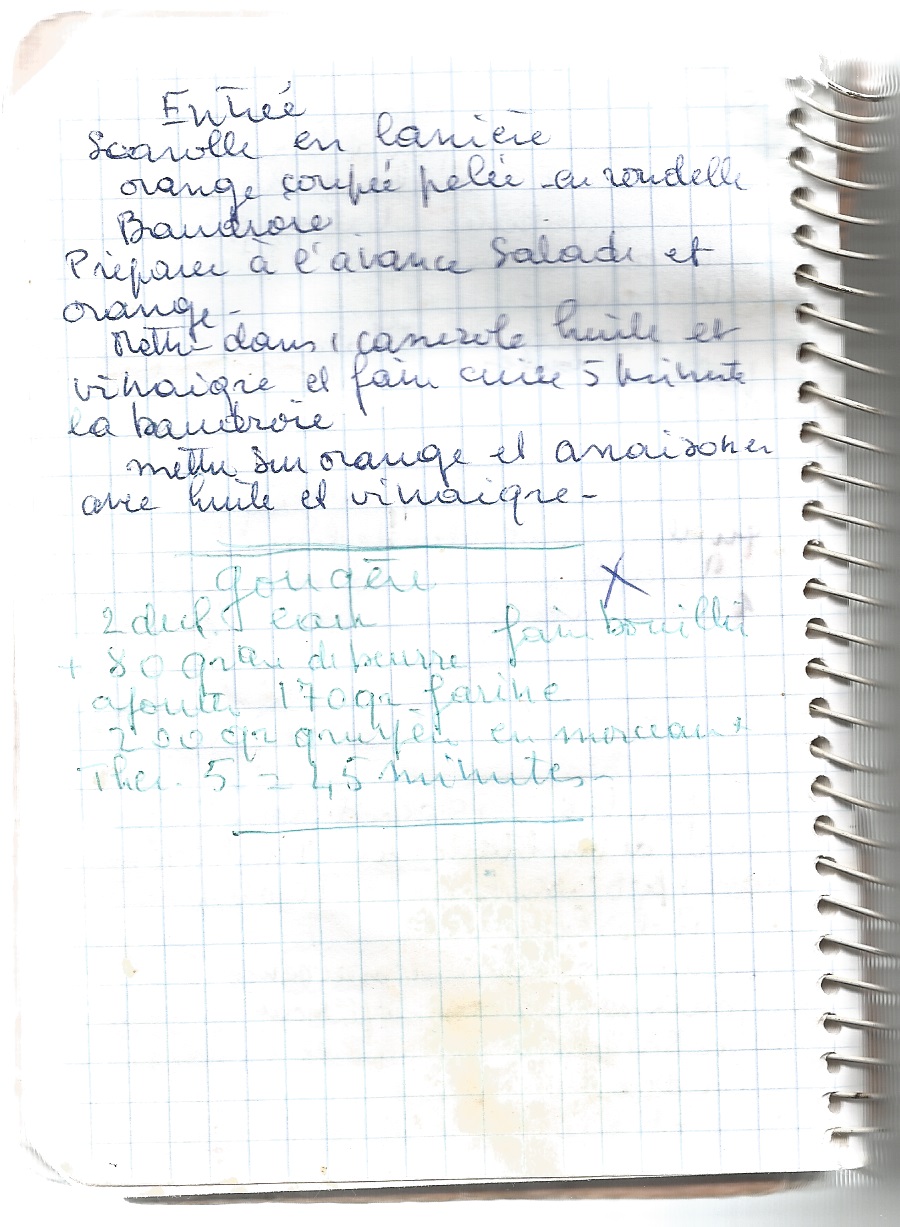 Entrée
Scarolle en lanière
orange coupée pelée en rondelle
Baudroie
Préparer à l'avance Salade et
orange -
Mettre dans 1 casserole huile et
vinaigre et faire cuire 5 minute
la baudroie
mettre sur orange et assaisoner
avec huile et vinaigre -
gougère X
2 eau faire bouillir
+ 80 gram de beurre
ajouter 170 gr farine
200 gr gruyère en morceaux
Ther. 5 = 45 minutes -